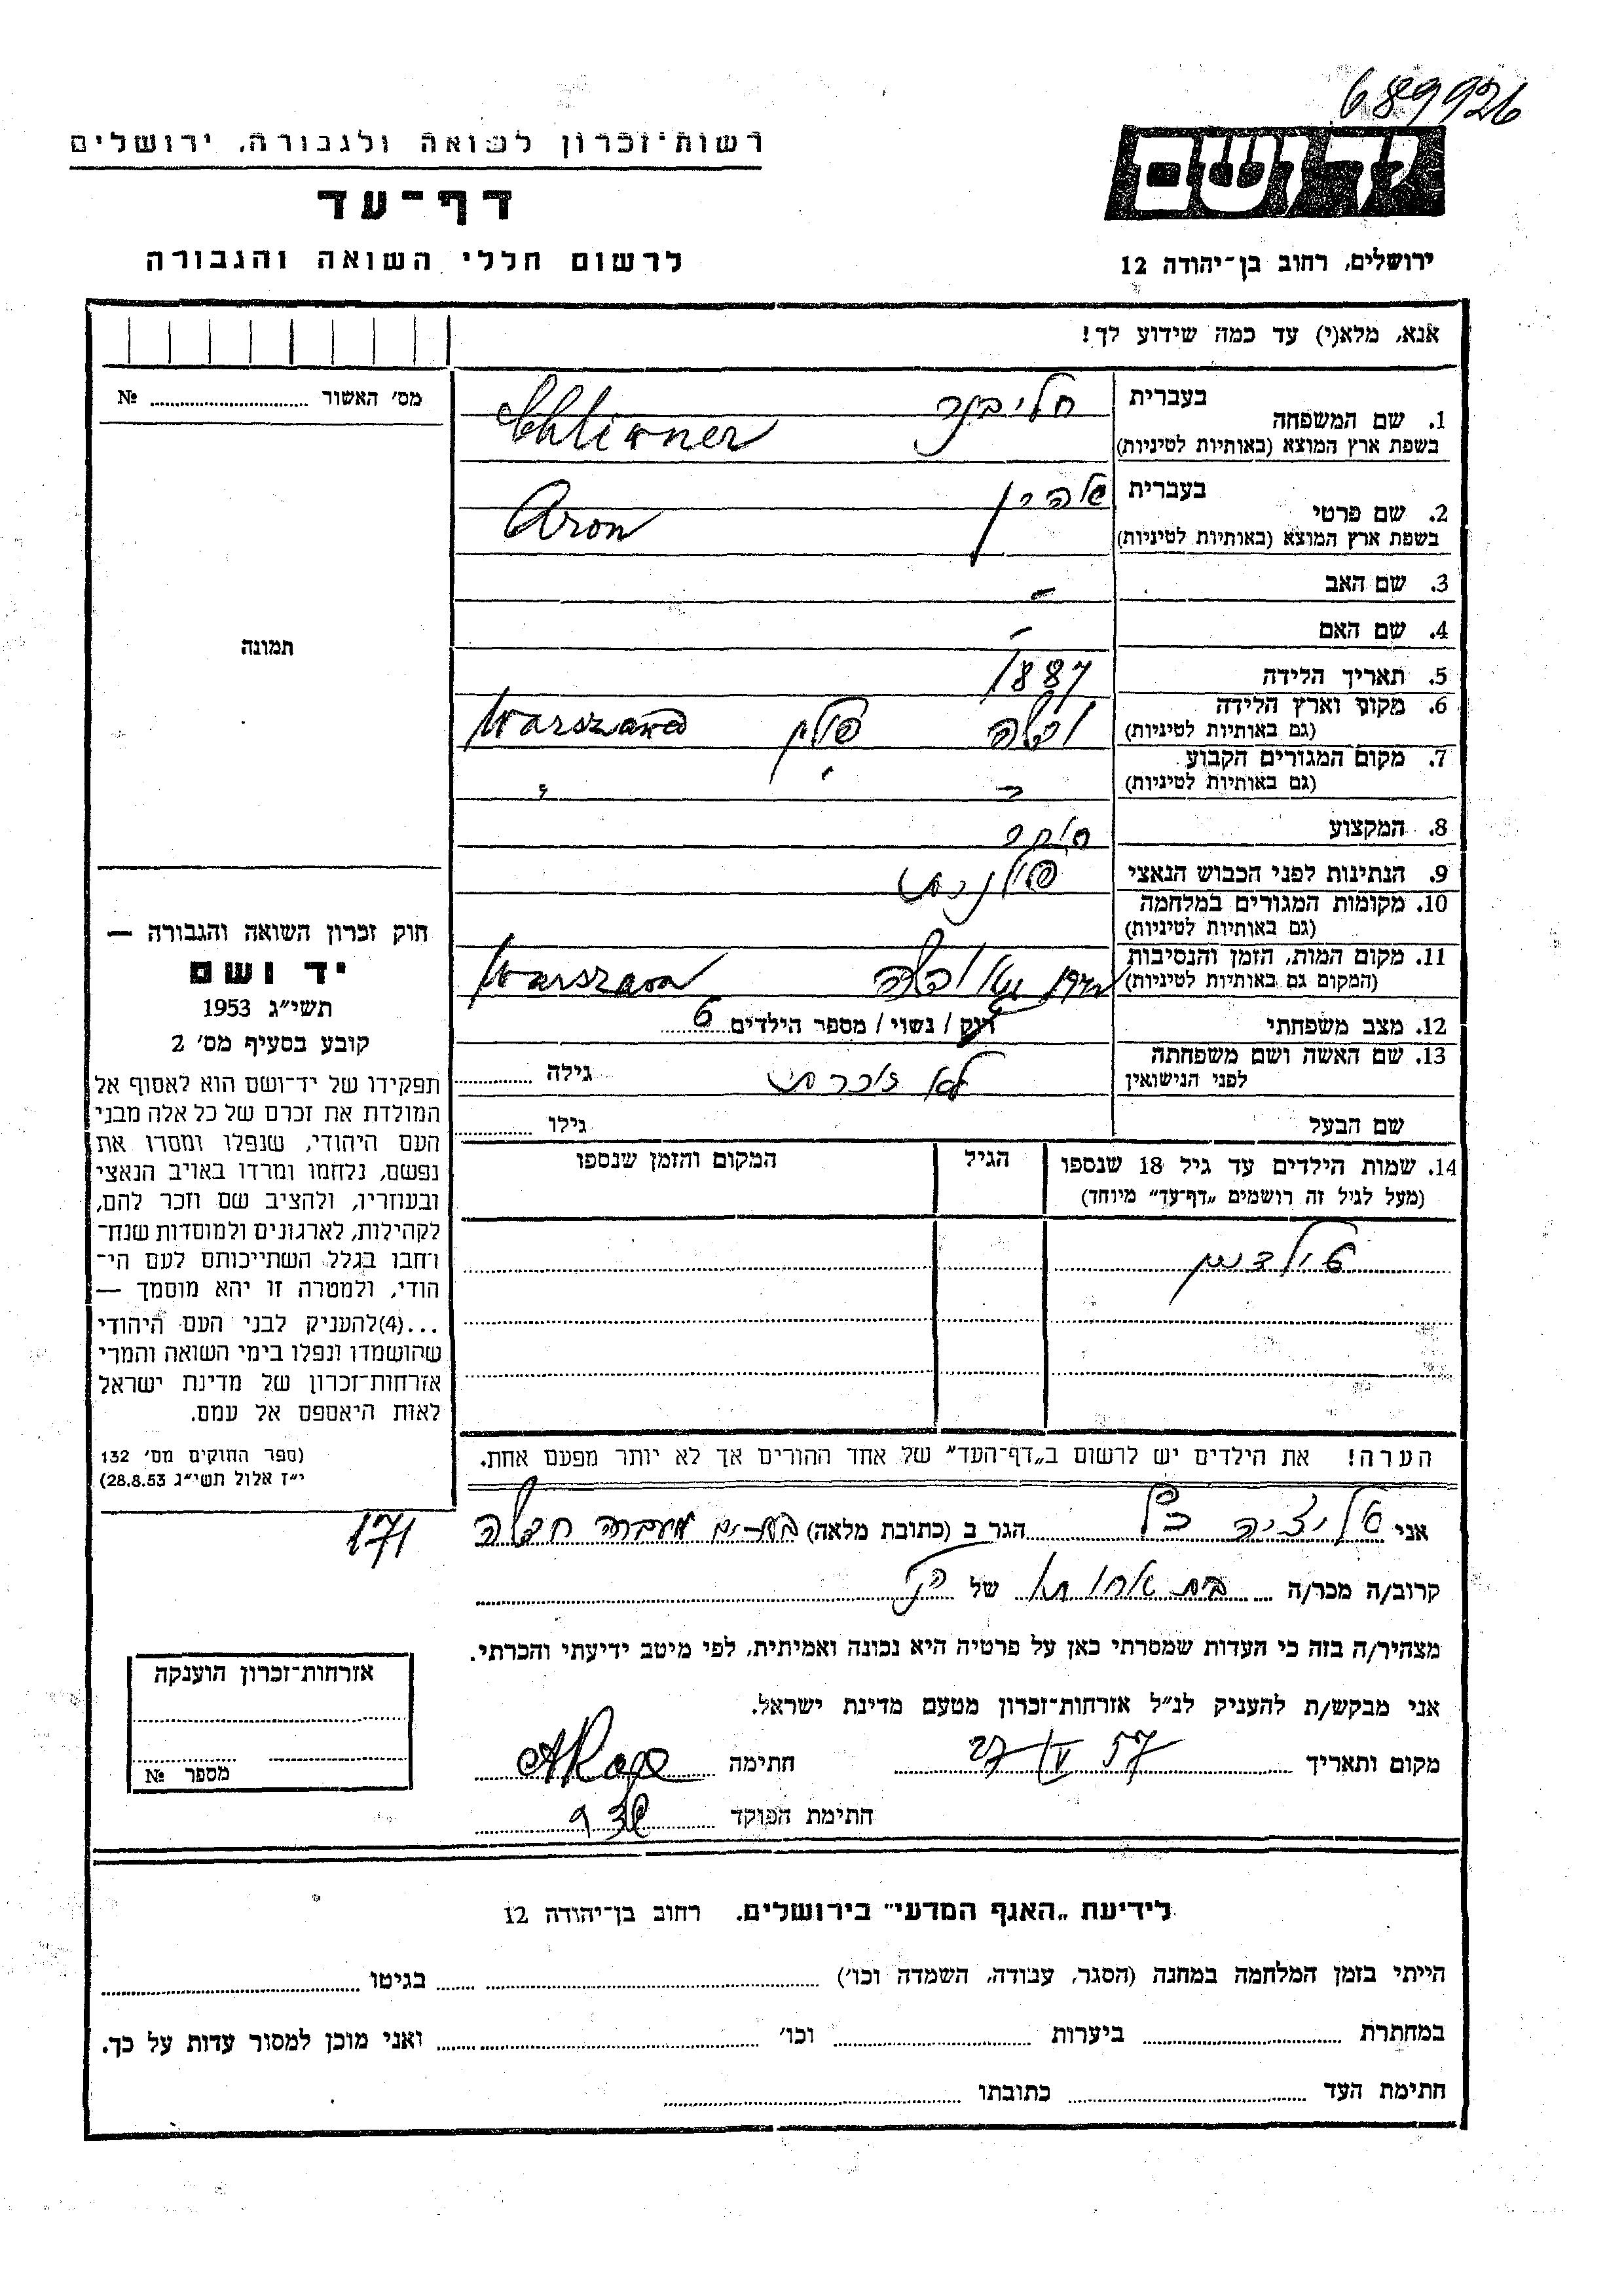 689926
רשות־זכרון לשואה ולגבורה, ירושלים
יד ושם
דף־עד
לרשום חללי השואה והגבורה
ירושלים, רחוב בן־יהודה 12
אנא, מלא(י) עד כמה שידוע לך!
מס׳ האשור №
בעברית
1. שם המשפחה
בשפת ארץ המוצא (באותיות לטיניות)
בעברית
2. שם פרטי אהרן
בשפת ארץ המוצא (באותיות לטיניות) Aron
3. שם האב –
4. שם האם –
5. תאריך הלידה 1887
6. מקום וארץ הלידה
(גם באותיות לטיניות) ורשה פולין Warszawa
7. מקום המגורים הקבוע
(גם באותיות לטיניות)
8. המקצוע סוחר
9. הנתינות לפני הכבוש הנאצי פולנית
10. מקומות המגורים במלחמה
(גם באותיות לטיניות)
11. מקום המות, הזמן והנסיבות
(המקום גם באותיות לטיניות) ורשה Warszawa
12. מצב משפחתי רוק / נשוי / מספר הילדים 6
13. שם האשה ושם משפחתה
לפני הנישואין לא זוכרת גילה
שם הבעל גילו
תמונה
חוק זכרון השואה והגבורה —
יד ושם
תשי״ג 1953
קובע בסעיף מס׳ 2
תפקידו של יד־ושם הוא לאסוף אל
המולדת את זכרם של כל אלה מבני
העם היהודי, שנפלו ומסרו את
נפשם, נלחמו ומרדו באויב הנאצי
ובעוזריו, ולהציב שם וזכר להם,
לקהילות, לארגונים ולמוסדות שנח־
רחבו בגלל השתייכותם לעם הי־
הודי, ולמטרה זו יהא מוסמך —
...(4)להעניק לבני העם היהודי
שהושמדו ונפלו בימי השואה והמרי
אזרחות־זכרון של מדינת ישראל
לאות היאספם אל עמם.
(ספר החוקים מס׳ 132
י״ז אלול תשי״ג 28.8.53)
14. שמות הילדים עד גיל 18 שנספו
(מעל לגיל זה רושמים „דף־עד״ מיוחד)
הגיל
המקום והזמן שנספו
הערה! את הילדים יש לרשום ב„דף־העד״ של אחד ההורים אך לא יותר מפעם אחת.
171
אני הגר ב (כתובת מלאה) מעברה חדשה
קרוב/ה מכר/ה בת אחותו של הנ״ל
מצהיר/ה בזה כי העדות שמסרתי כאן על פרטיה היא נכונה ואמיתית, לפי מיטב ידיעתי והכרתי.
אני מבקש/ת להעניק לנ״ל אזרחות־זכרון מטעם מדינת ישראל.
מקום ותאריך 27 IV 57 חתימה
חתימת הפוקד
אזרחות־זכרון הוענקה
מספר №
לידיעת „האגף המדעי״ בירושלים. רחוב בן־יהודה 12
הייתי בזמן המלחמה במחנה (הסגר, עבודה, השמדה וכו׳) בגיטו
במחתרת ביערות וכו׳ ואני מוכן למסור עדות על כך.
חתימת העד כתובתו